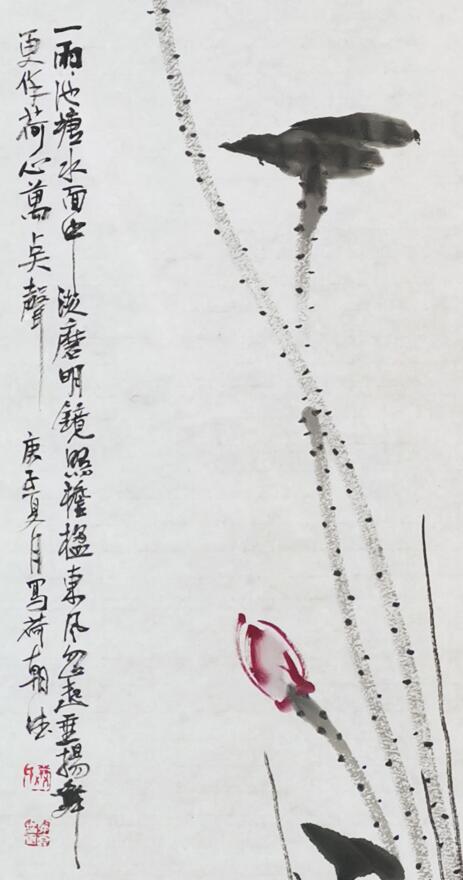 一雨池塘水面平淡磨明鏡照檐楹東風忽起垂揚舞
更作荷心萬点聲 庚子夏月写荷朝